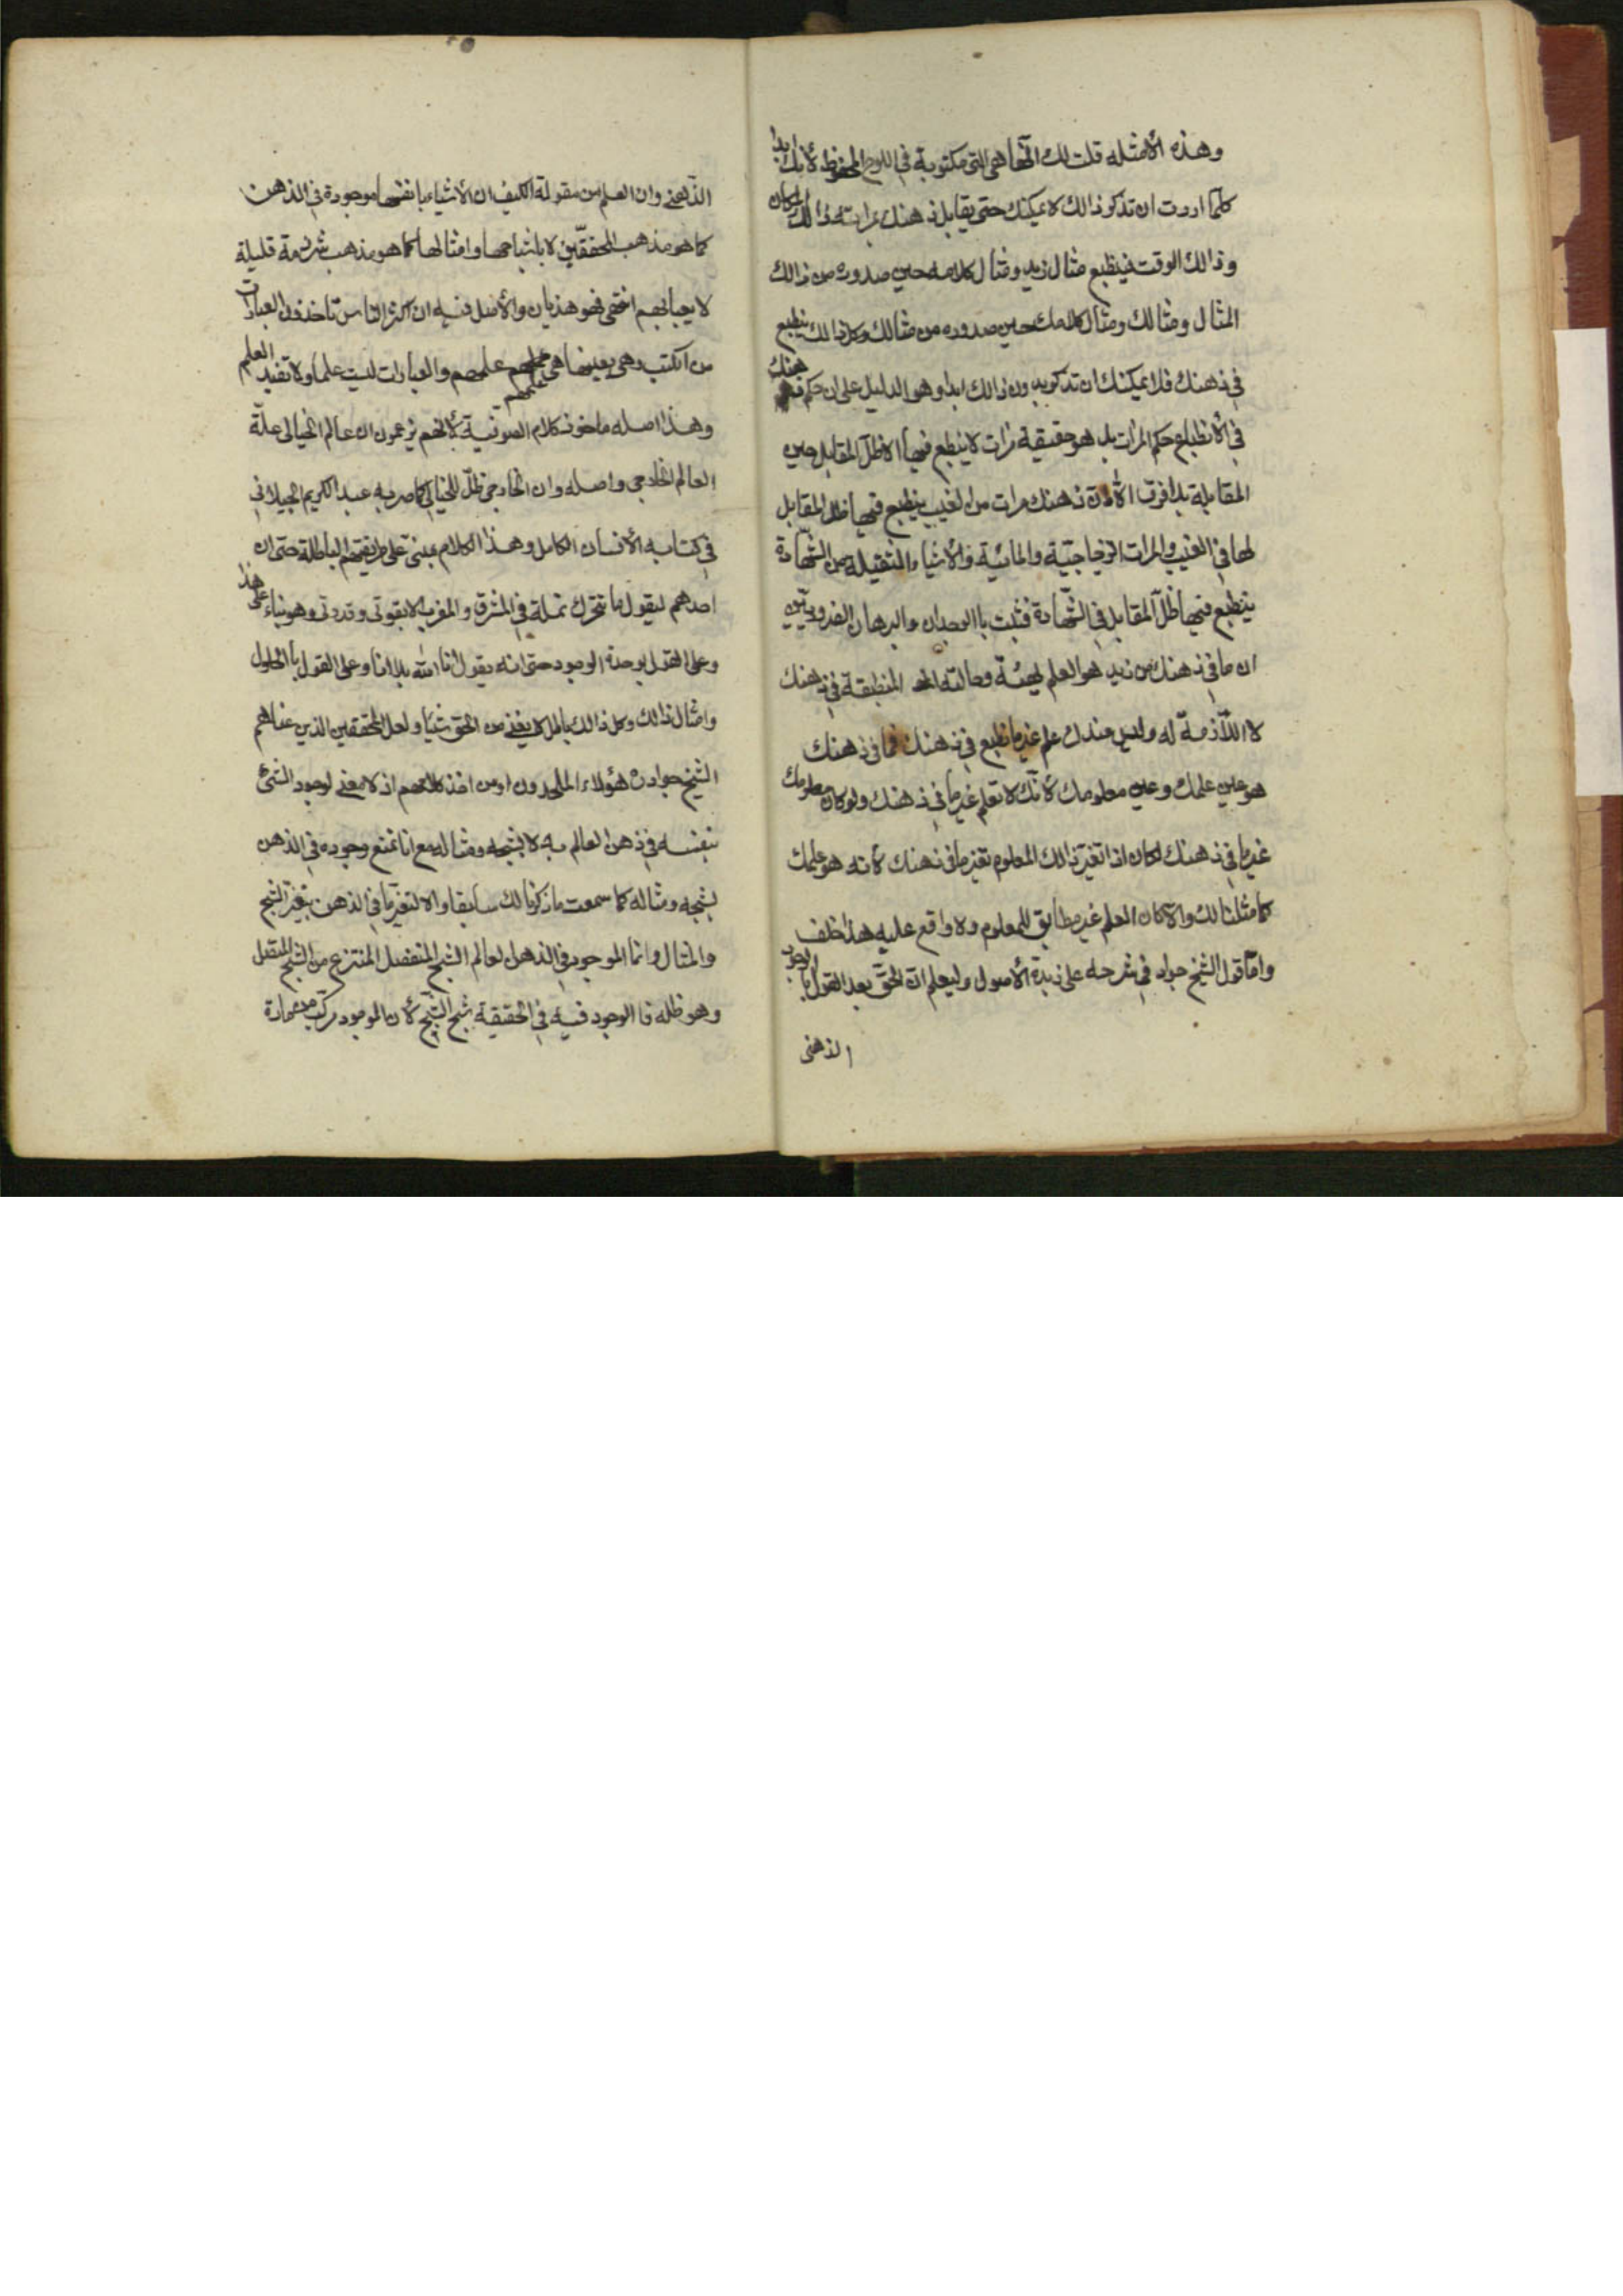 وهذه الأمثله قلت لك انّها هي التي مكتوبة في اللوح المحفوظ لأنك ابدا
كلما اردت ان تذكر ذالك لا يمكنك حتى يقابل ذهنك بمراته ذالك المكان
وذالك الوقت فينطبع مثال زيد ومثال كلامه حين صدوره من ذالك
المثال ومثالك ومثال كلامك حين صدوره من مثالك وكل ذالك ينطبع
في ذهنك فلا يمكنك ان تذكر بدون ذالك ابدا وهو الدليل على ان حكم ذهنك
في الأنطباع حكم المرات بل هو حقيقة مرات لا ينطبع فيها الا ظل المقابل حين
المقابلة بلا فرق الا ان ذهنك مرات من الغيب ينطبع فيها ظل المقابل
لها في الغيب والمرات الزجاجيّة والمائية والأشياء الثقيله من الشّهادة
ينطبع فيها ظلّ المقابل في الشّهادة فثبت باالوجدان والبرهان الضروريّين
ان ما في ذهنك من زيد هو العلم بهيئة وحالته المنطبقة في ذهنك
لا اللّازمة له وليس عندك علم غير ما انطبع في ذهنك فما في ذهنك
هو عين علمك وعين معلومك لأنّك لا تعلم غير ما في ذهنك ولو كان معلومك
غير ما في ذهنك لكان اذا تغير ذالك المعلوم تغير ما في ذهنك لأنه هو علمك
كما مثلنا لك والّا لكان العلم غير مطابق للمعلوم ولا واقع عليه هذا خلف
وامّا قول الشيخ جواد في شرحه على زبدة الأصول وليعلم انّ الحقّ بعد القول باالوجود
الذهنى
الذّهني وان العلم من مقولة الكيف ان الأشياء بانفسها موجودة في الذهن
كما هو مذهب المحققّين لا باشباحها وامثالها كما هو مذهب شرذمة قليلة
لا يعبأ بهم انتهى فهو هذيان والأصل فيه ان اكثر الناس تأخذون العبارات
من الكتب وهي بعينها هي علمهم والعبارات ليست علما ولا تفيد العلم
وهذا اصله ماخوذ كلام الصوفية لأنّهم يزعمون ان عالم الخيالى علّة
العالم الخارجى واصله وان الخارجى ظلّ للخيالى كما صرح به عبد الكريم الجيلاني
في كتابه الأنسان الكامل وهذا الكلام مبنىّ على طريقتهم الباطلة حتى ان
احدهم ليقول ما تتحرك نملة في المشرق والمغرب الا بقوتى وقدرتى وهو بناء على هذا
وعلى القول بوحدة الوجود حتى انه يقول انا الله بلا انا وعلى القول باالحلول
وامثال ذالك وكل ذالك باطل لا يغني من الحق شيئا ولعل المحققين الذين عناهم
الشيخ جواد ره هؤلاء الملحدون او من اخذ كلامهم اذ لا معنى لوجود الشئ
بنفسه في ذهن العالم به لا بشبحه ومثاله مع انا نمنع وجوده في الذهن
بشبحه ومثاله كما سمعت ما ذكرنا لك سابقا والا لتغير ما في الذهن بتغيّر الشبح
والمثال وانما الموجود في الذهن لعالم الشبح المنفصل المنتزع من الشبح المتصل
وهو ظله فا الوجود فيه في الحقيقة شبح الشبح لأن الموجود مركّب من مادة